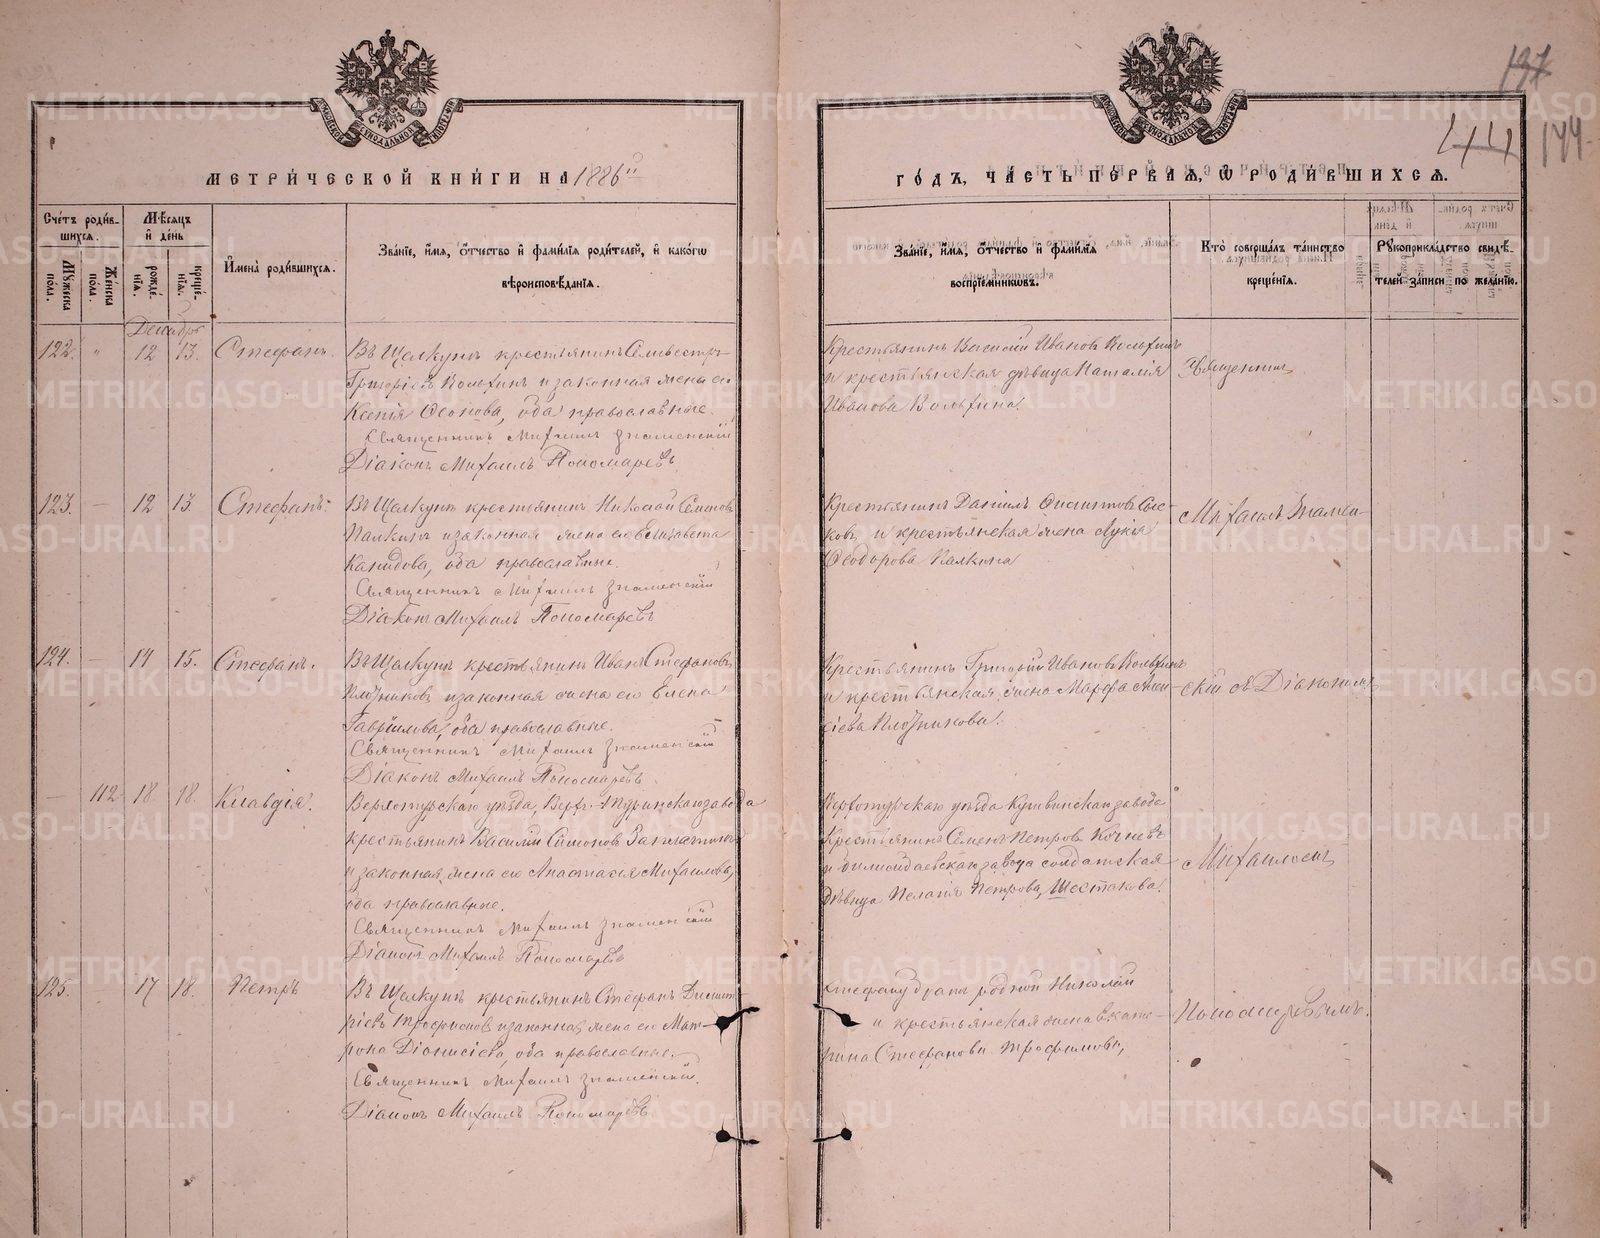 197
144
МЕТРИ́ЧЕСКОЙ КНИ́ГИ НА 1886й
ГО́ДЪ, ЧА́СТЬ ПЕ́РВАѦ, Ѽ РОДИ́ВШИХСѦ.
Сче́тъ роди́в-
шихсѧ.
Му́жеска пола.
Же́нска пола.
Мѣ́сѧцъ
и҆ де́нь
рожде́нїѧ.
креще́нїѧ.
И҆мена̀ роди́вшихсѧ.
Зва́нїе, и҆́мѧ, ѻ҆́тчество и҆ фами́лїѧ роди́телей, и҆ како́гѡ
вѣроисповѣ́данїѧ.
Зва́нїе, и҆́мѧ, ѻ҆́тчество и҆ фами́лїѧ
воспрїе́мникѡвъ.
Кто̀ соверша́лъ та́инство
креще́нїѧ.
Рꙋкоприкла́дство свидѣ́-
телей за́писи по жела́нїю.
Декабрь
122. " 12 13. Стефанъ.
Въ Щелкунѣ крестьянинъ Селивестръ
Григорiевъ Кольтинъ и законная жена его
Ксенiя Осипова, оба православные.
Священникъ Михаилъ Знаменскiй
Дiаконъ Михаилъ Пономаревъ
Крестьянинъ Василiй Ивановъ Кольтинъ
и крестьянская дѣвица Наталiя
Иванова Кольтина.
Священникъ
123. — 12 13. Стефанъ.
Въ Щелкунѣ крестьянинъ Николай Семеновъ
Палкинъ и законная жена его Елизавета
Канидова, оба православные.
Священникъ Михаилъ Знаменскiй
Дiаконъ Михаилъ Пономаревъ
Крестьянинъ Данiилъ
и крестьянская жена Лукiя
Ѳеодорова Палкина
Михаилъ Знамен-
124. — 14 15. Стефанъ.
Въ Щелкунѣ крестьянинъ Иванъ Стефановъ
Плотниковъ и законная жена его Елена
Гаврiилова, оба православные.
Священникъ Михаилъ Знаменскiй
Дiаконъ Михаилъ Пономаревъ
Крестьянинъ Григорiй Ивановъ Кольтинъ
и крестьянская жена Марѳа Алек-
сiева Плотникова.
скiй съ Дiакономъ
— 112 18. 18. Клавдiя.
Верхотурскаго уѣзда, Верхъ-Туринскаго завода
крестьянинъ Василiй Симоновъ Заплатинъ
и законная жена его Анастасiя Михаилова,
оба православные.
Священникъ Михаилъ Знаменскiй
Дiаконъ Михаилъ Пономаревъ
Верхотурскаго уѣзда Кушвинскаго завода
Крестьянинъ Семенъ Петровъ Кочневъ
и Билимбаевскаго завода солдатская
дѣвица Пелагiя Петрова Шестакова.
Михаиломъ
125. — 17 18. Петръ
Въ Щелкунѣ крестьянинъ Стефанъ Димит-
рiевъ Трофимовъ и законная жена его Мат-
рона Дiонисiева, оба православные.
Священникъ Михаилъ Знаменскiй.
Дiаконъ Михаилъ Пономаревъ
Стефану братъ родной Николай
и крестьянская жена Екате-
рина Стефанова Трофимова,
Пономаревымъ.
METRIKI.GASO-URAL.RU